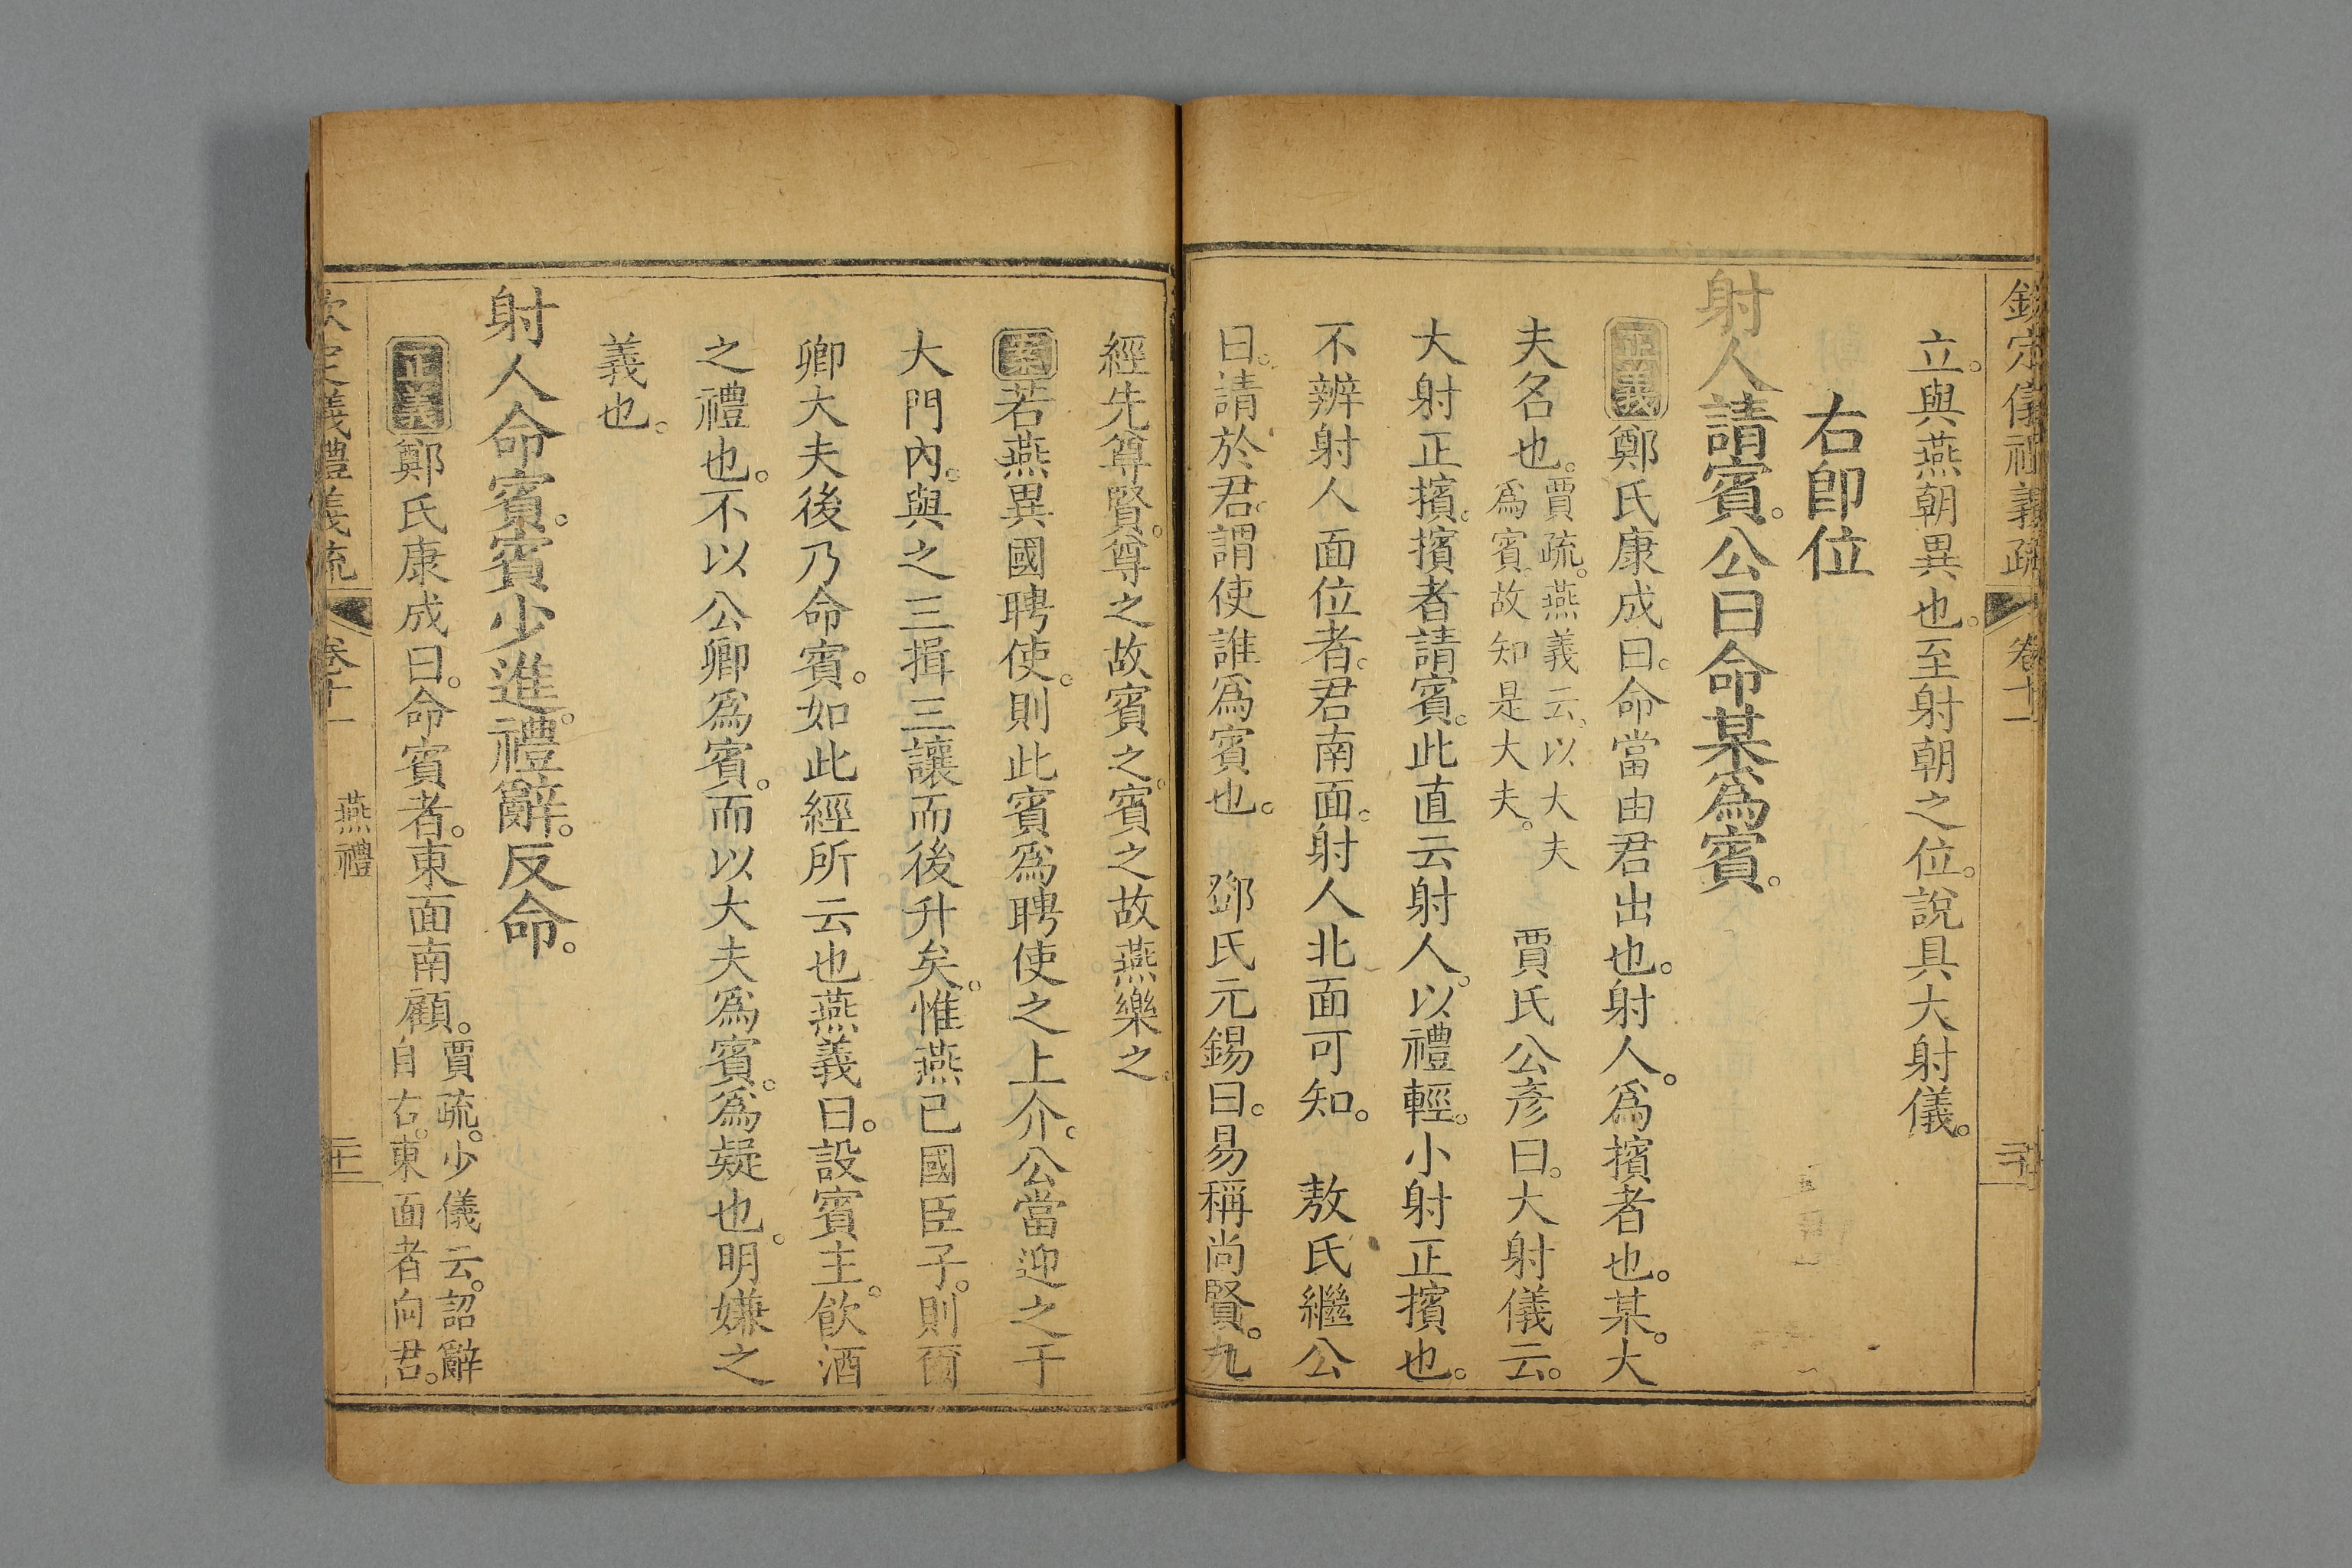 欽定儀禮義疏 卷十一
立。與燕朝異也。至射朝之位。說具大射儀。
右卽位
射人請賓。公曰命某爲賓。
正義鄭氏康成曰。命當由君出也。射人。爲擯者也。某。大
夫名也。賈疏。燕義云。以大夫爲賓。故知是大夫。 賈氏公彥曰。大射儀云。
大射正擯。擯者請賓。此直云射人。以禮輕。小射正擯也。
不辨射人面位者。君南面。射人北面可知。 敖氏繼公
曰。請於君。謂使誰爲賓也。 鄧氏元錫曰。易稱尚賢。九
經先尊賢。尊之故賓之。賓之故燕樂之。
案若燕異國聘使。則此賓爲聘使之上介。公當迎之于
大門內。與之三揖三讓而後升矣。惟燕己國臣子。則爾
卿大夫後乃命賓。如此經所云也燕義曰。設賓主。飮酒
之禮也。不以公卿爲賓。而以大夫爲賓。爲疑也。明嫌之
義也。
射人命賓。賓少進。禮辭。反命。
正義鄭氏康成曰。命賓者。東面南顧。賈疏。少儀云。詔辭自右。東面者向君。
欽定儀禮義疏 卷十一 燕禮